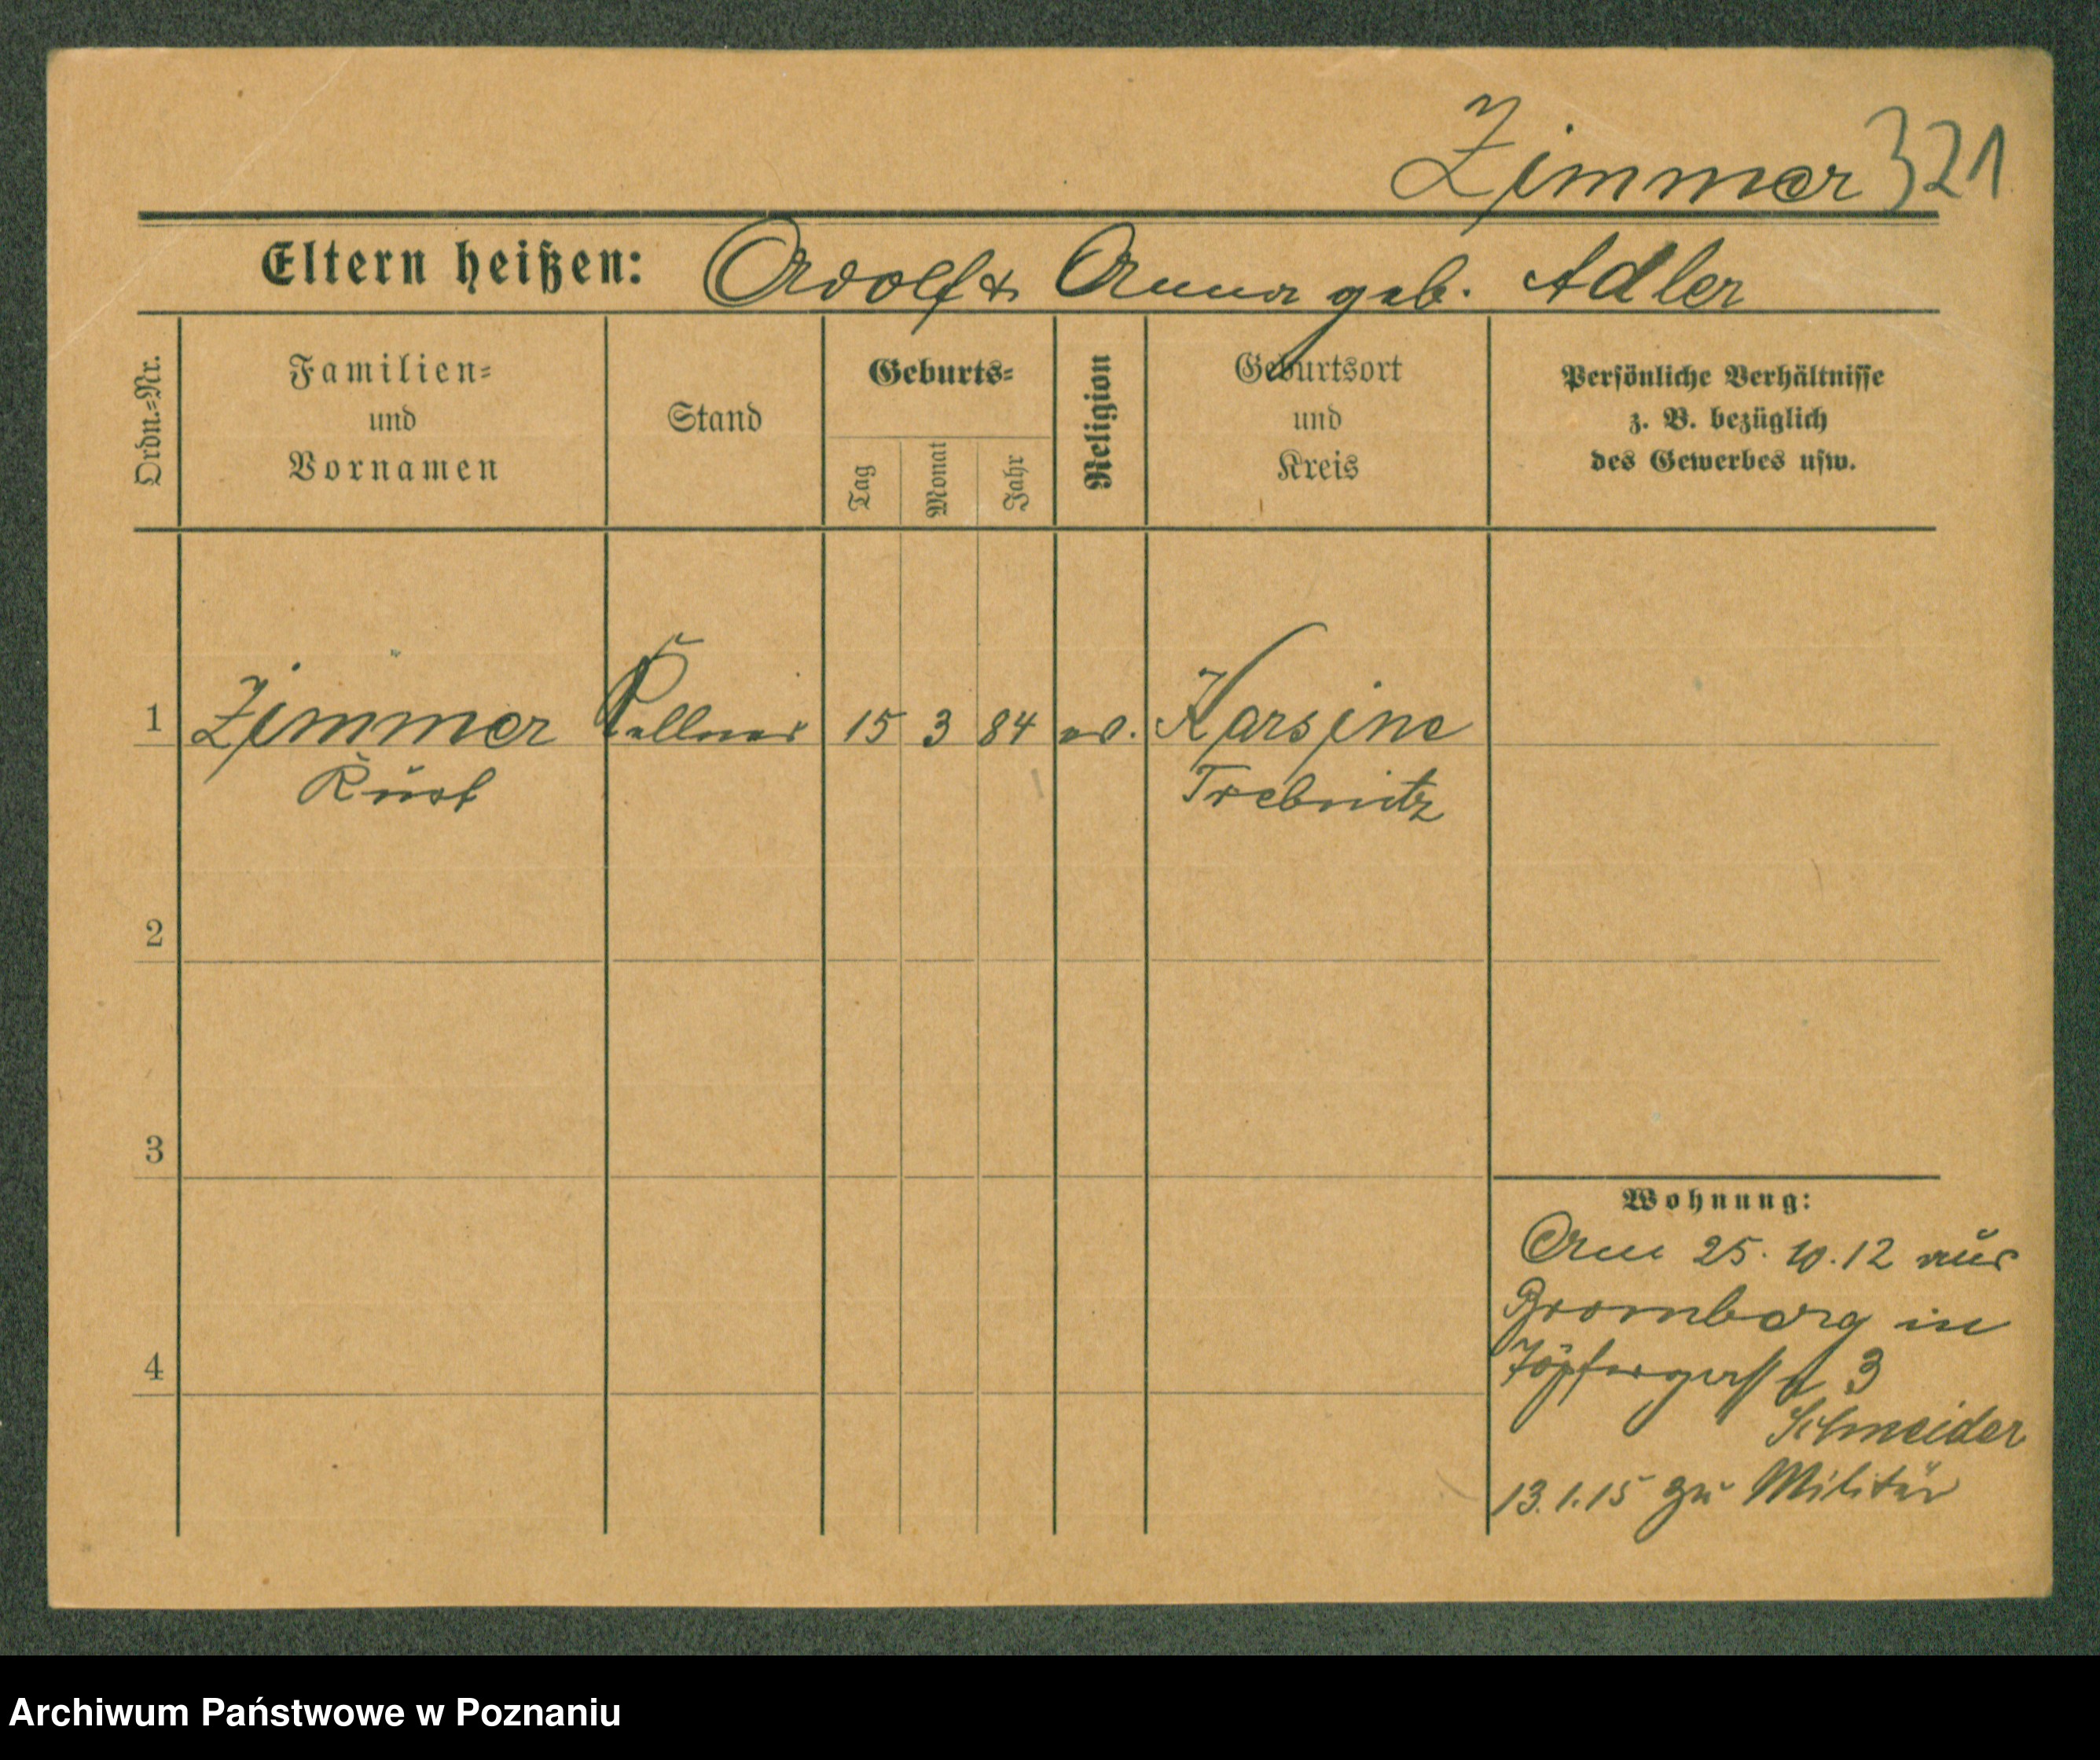 Zimmer 321
Eltern heißen: Adolf & Anna geb. Adler
Ordn.=Nr.
Familien=
und
Vornamen
Stand
Geburts=
Tag
Monat
Jahr
Religion
Geburtsort
und
Kreis
Persönliche Verhältnisse
z. B. bezüglich
des Gewerbes usw.
1 Zimmer Kellner 15 3 84 ev. Karsine
Kurt Trebnitz
2
3
4
Wohnung:
Am 25.10.12 aus
Bromberg in
Töpfergasse 3
Schneider
13.1.15 zu Militär
Archiwum Państwowe w Poznaniu